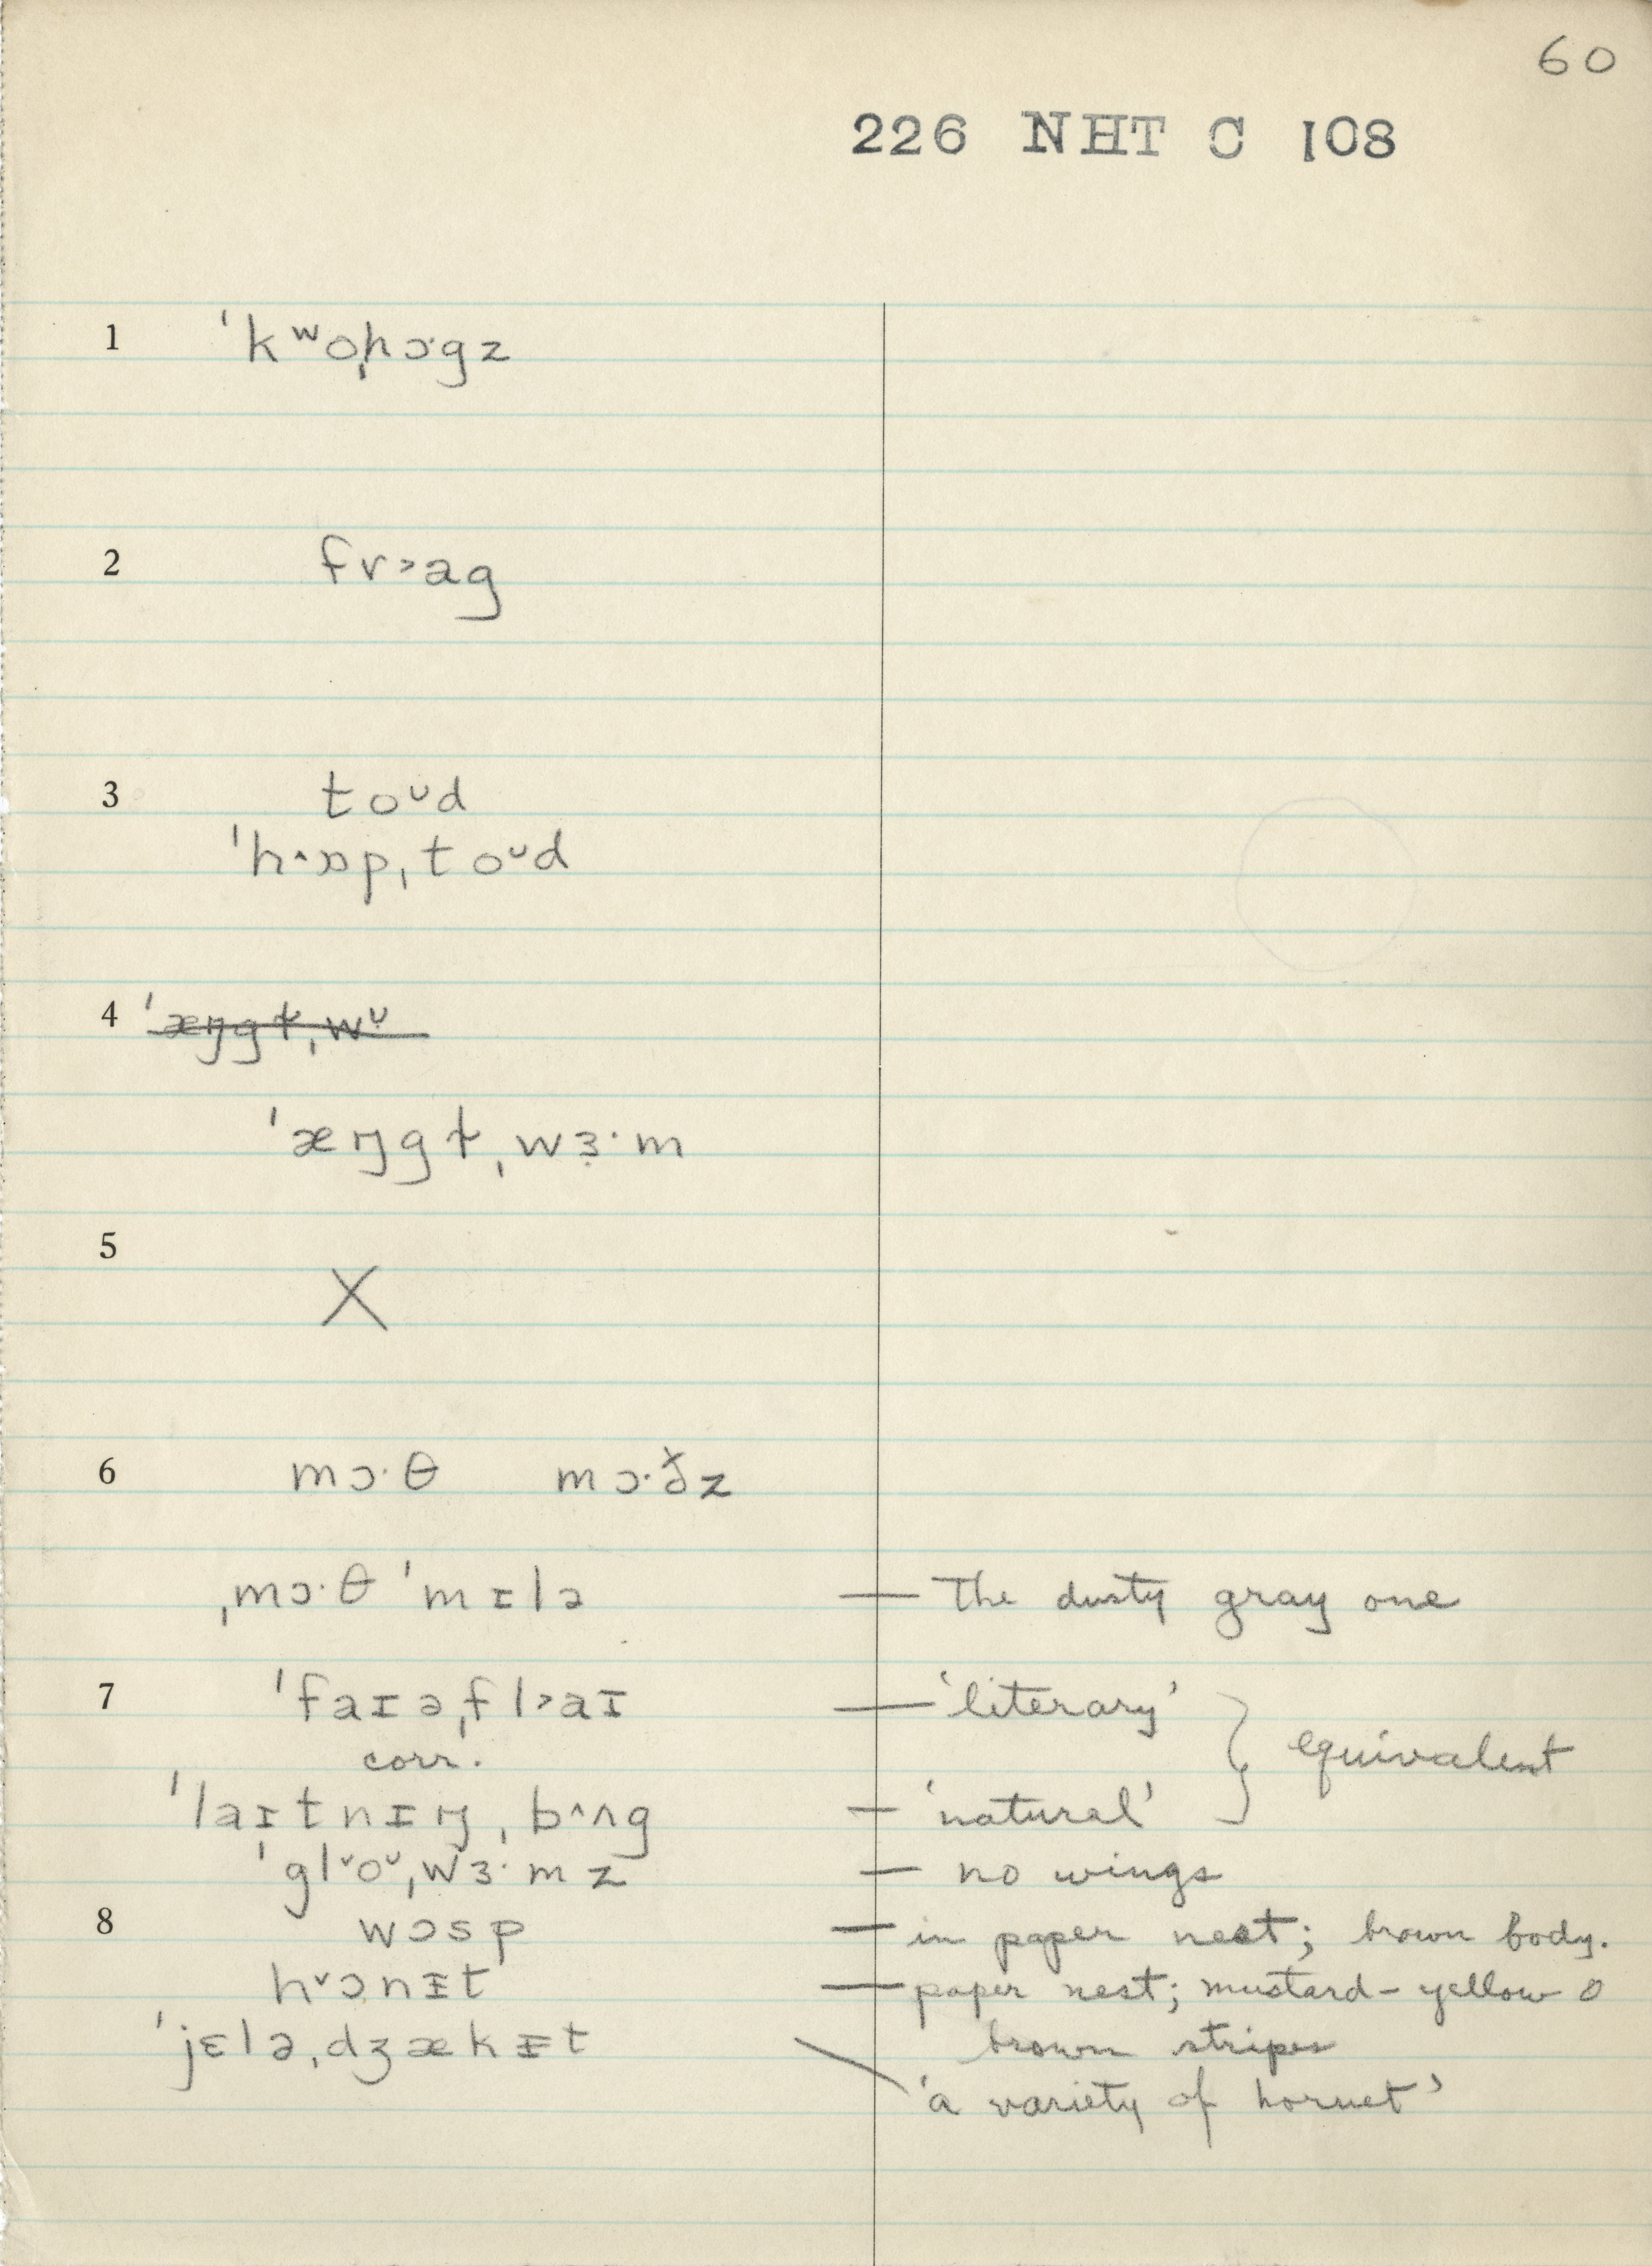 60
226 NHT C 108
1 ˈkʷoˌhɔˑgz
2 fr˃ag
3 toᴗd
ˈh˄ɒpˌtoᴗd
4 ˈæŋgɫˌwᴗ
ˈæŋgɫˌwɜ̣ˑm
5 X
6 mɔˑθ mɔˑðz
ˌmɔˑθˈmɪlə — The dusty gray one
7 ˈfaɪəˌfl˃aɪ — 'literary'
corr. equivalent
ˈlaɪtnɪŋˌb˄ʌg — 'natural'
ˈgl˅oᴗˌwɜˑmz — no wings
8 wɔsp — in paper nest; brown body.
h˅ɔnɪ̵t — paper nest; mustard-yellow
ˈjɛləˌdʒækɪ̵t brown stripes
'a variety of hornet'